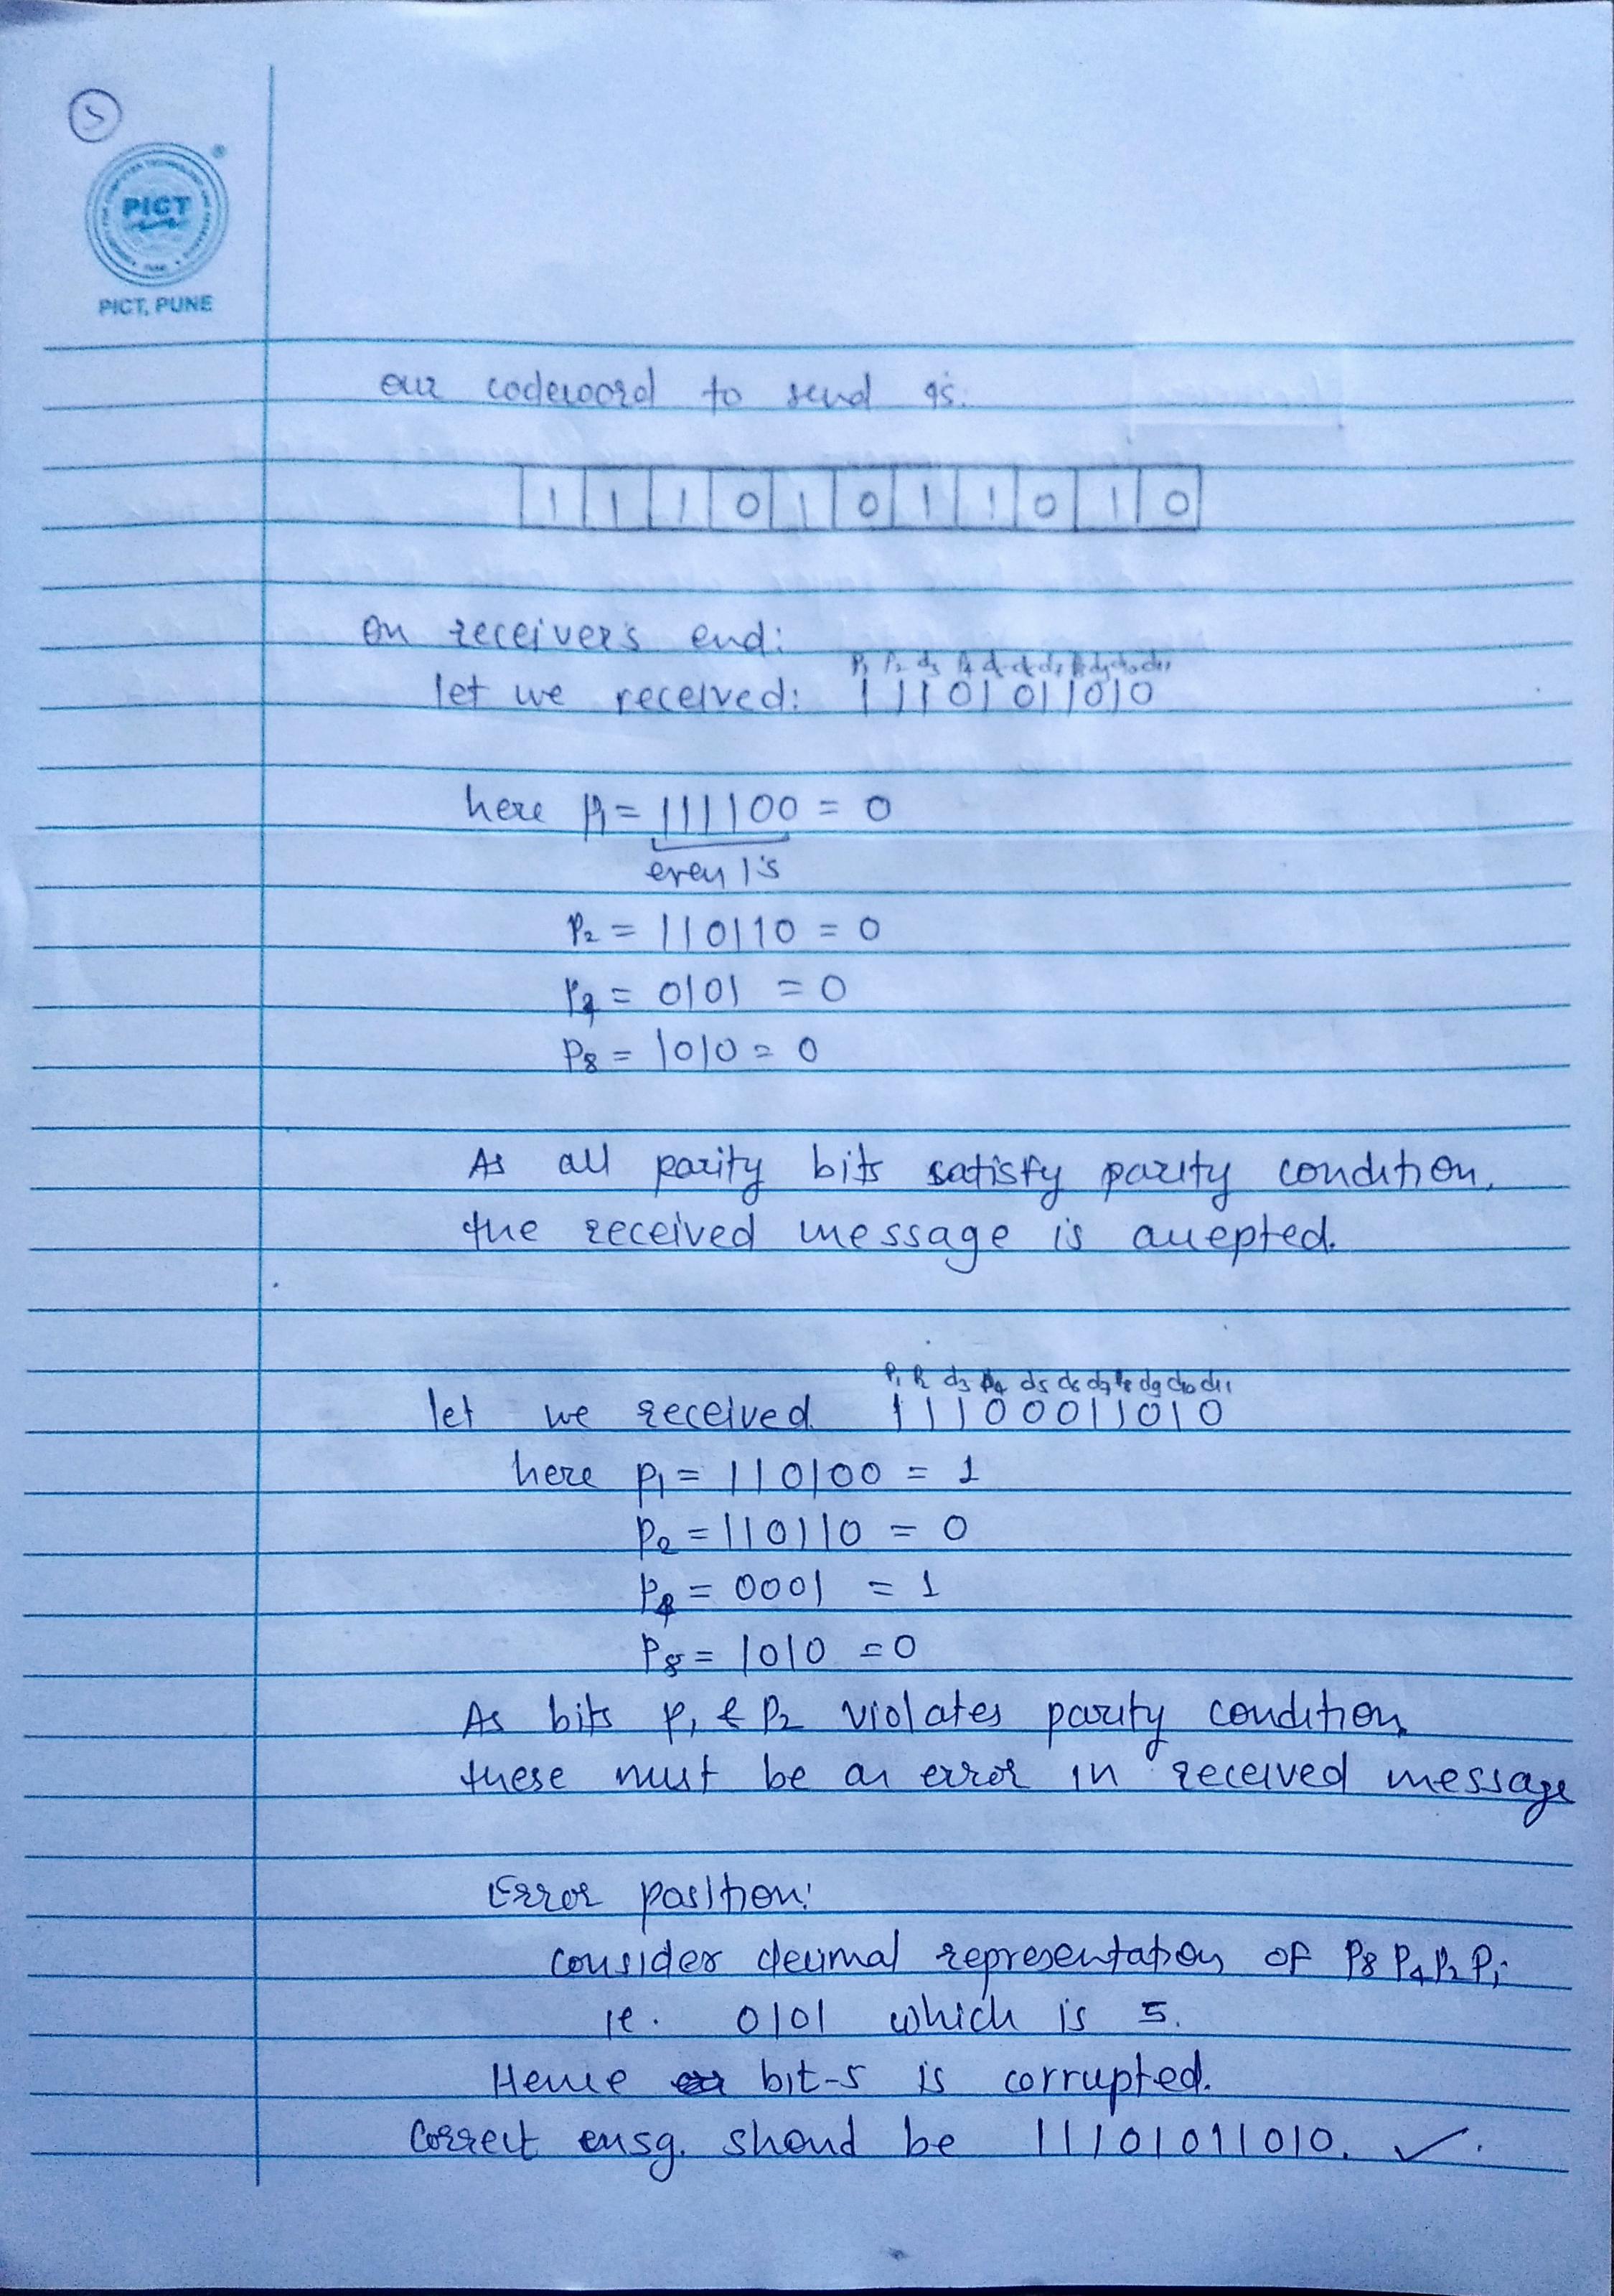 PICT
PICT, PUNE
our codeword to send is:
1 1 1 0 1 0 1 1 0 1 0
on receiver's end:
P1 P2 d3 P4 d5 d6 d7 P8 d9 d10 d11
let we received: 11101011010
here P1 = 111100 = 0
even 1's
P2 = 110110 = 0
P4 = 0101 = 0
P8 = 1010 = 0
As all parity bits satisfy parity condition,
the received message is accepted.
P1 P2 d3 P4 d5 d6 d7 P8 d9 d10 d11
let we received 11100011010
here P1 = 110100 = 1
P2 = 110110 = 0
P4 = 0001 = 1
P8 = 1010 = 0
As bits P1 & P2 violates parity condition
there must be an error in received message
Error position:
consider decimal representation of P8 P4 P2 P1
ie. 0101 which is 5.
Hence bit-5 is corrupted.
Correct msg. should be 11101011010.